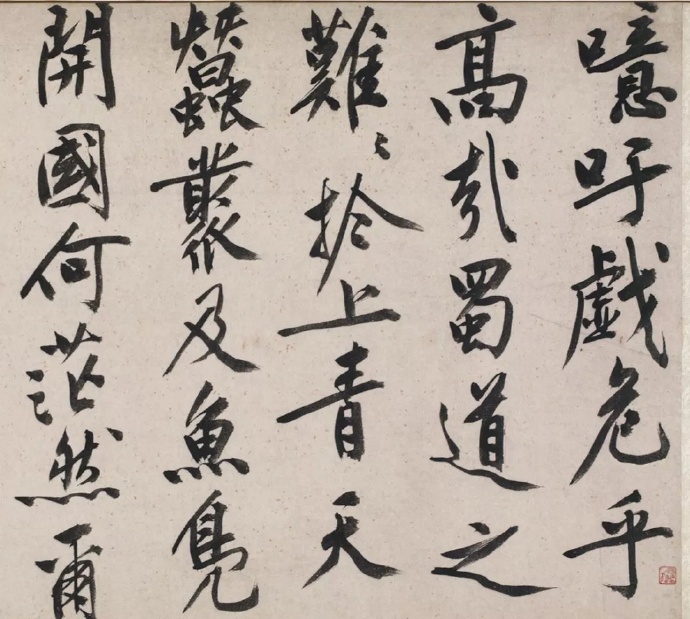 噫吁戲危乎
高哉蜀道之
難〻扵上青天
蠶叢及魚鳧
開國何茫然爾